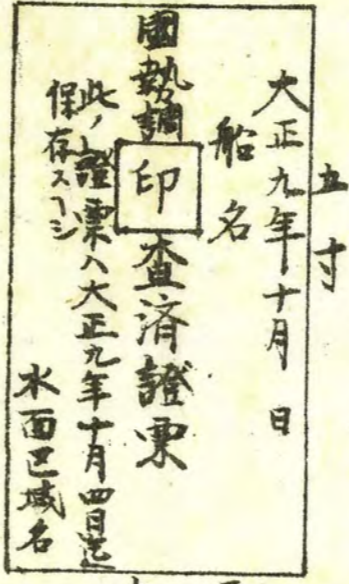 五寸
大正九年十月 日
船名
國勢調印査済證票
此ノ證票ハ大正九年十月四日迄
保存スヘシ
水面区域名